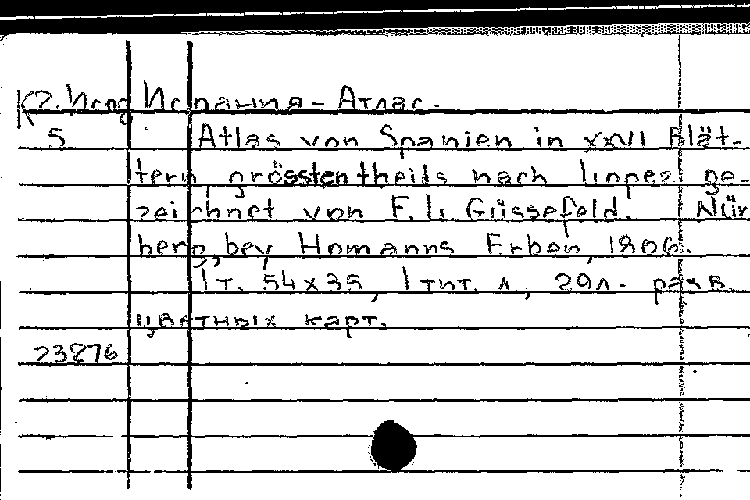 К2. Исп Испания - Атлас.
5 Atlas von Spanien in XXVI Blät-
tern grösstentheils nach Lopez ge-
zeichnet von F. L. Güssefeld. Nür
berg, bey Homanns Erben, 1806.
1 т. 54x35, 1 тит. л., 29 л. разв.
цветных карт.
23876